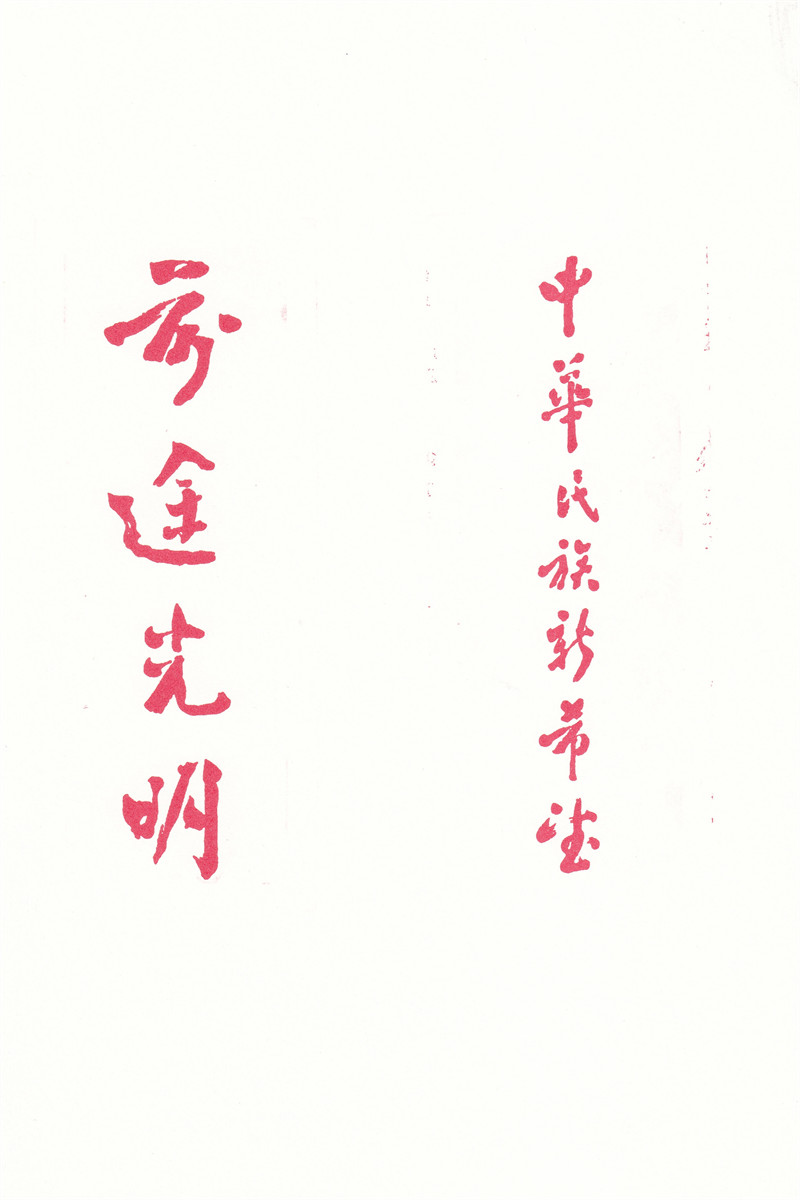 中華民族新希望
前途光明